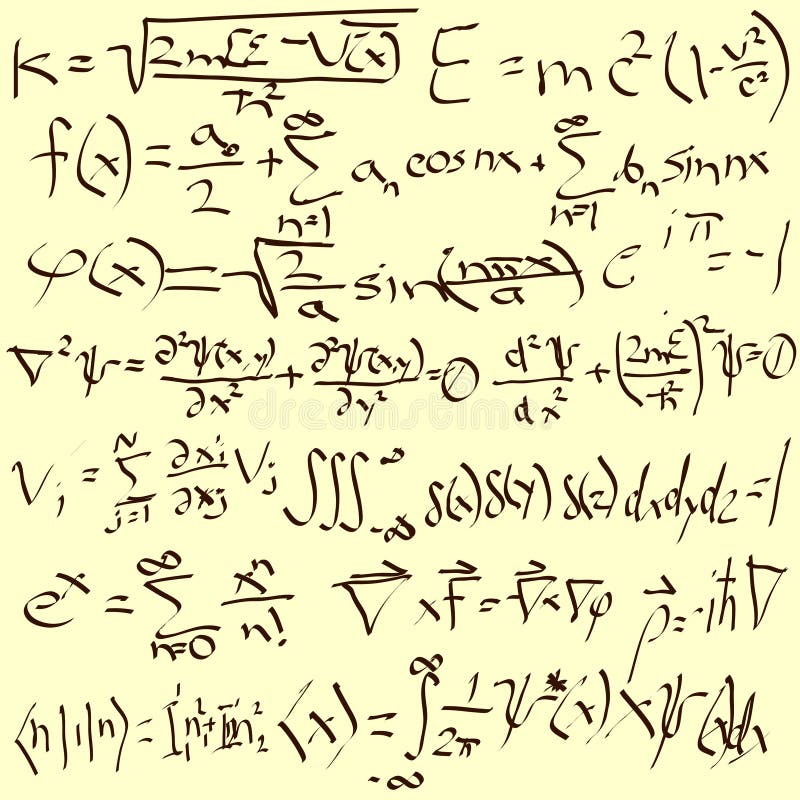 k = √(2m[E - V(x)] / ħ²) E = mc²(1 - v²/c²)
f(x) = a₀/2 + ∑_{n=1}^{∞} aₙ cos nx + ∑_{n=1}^{∞} bₙ sin nx
φ(x) = √(2/a) sin(nπx/a) e^{iπ} = -1
∇²ψ = ∂²ψ(x,y)/∂x² + ∂²ψ(x,y)/∂y² = 0 d²ψ/dx² + (2mE/ħ)²ψ = 0
Vᵢ = ∑_{j=1}^{N} ∂xᵢ/∂xⱼ Vⱼ ∭_{-∞}^{∞} δ(x)δ(y)δ(z)dxdydz = 1
eˣ = ∑_{n=0}^{∞} xⁿ/n! ∇⃗ × F⃗ = ∇⃗ × ∇φ p⃗ = -iħ∇
⟨n|1|n⟩ = ⟨x⟩ = ∫_{-∞}^{∞} 1/2π ψ*(x) x ψ(x)dx
dreamstime